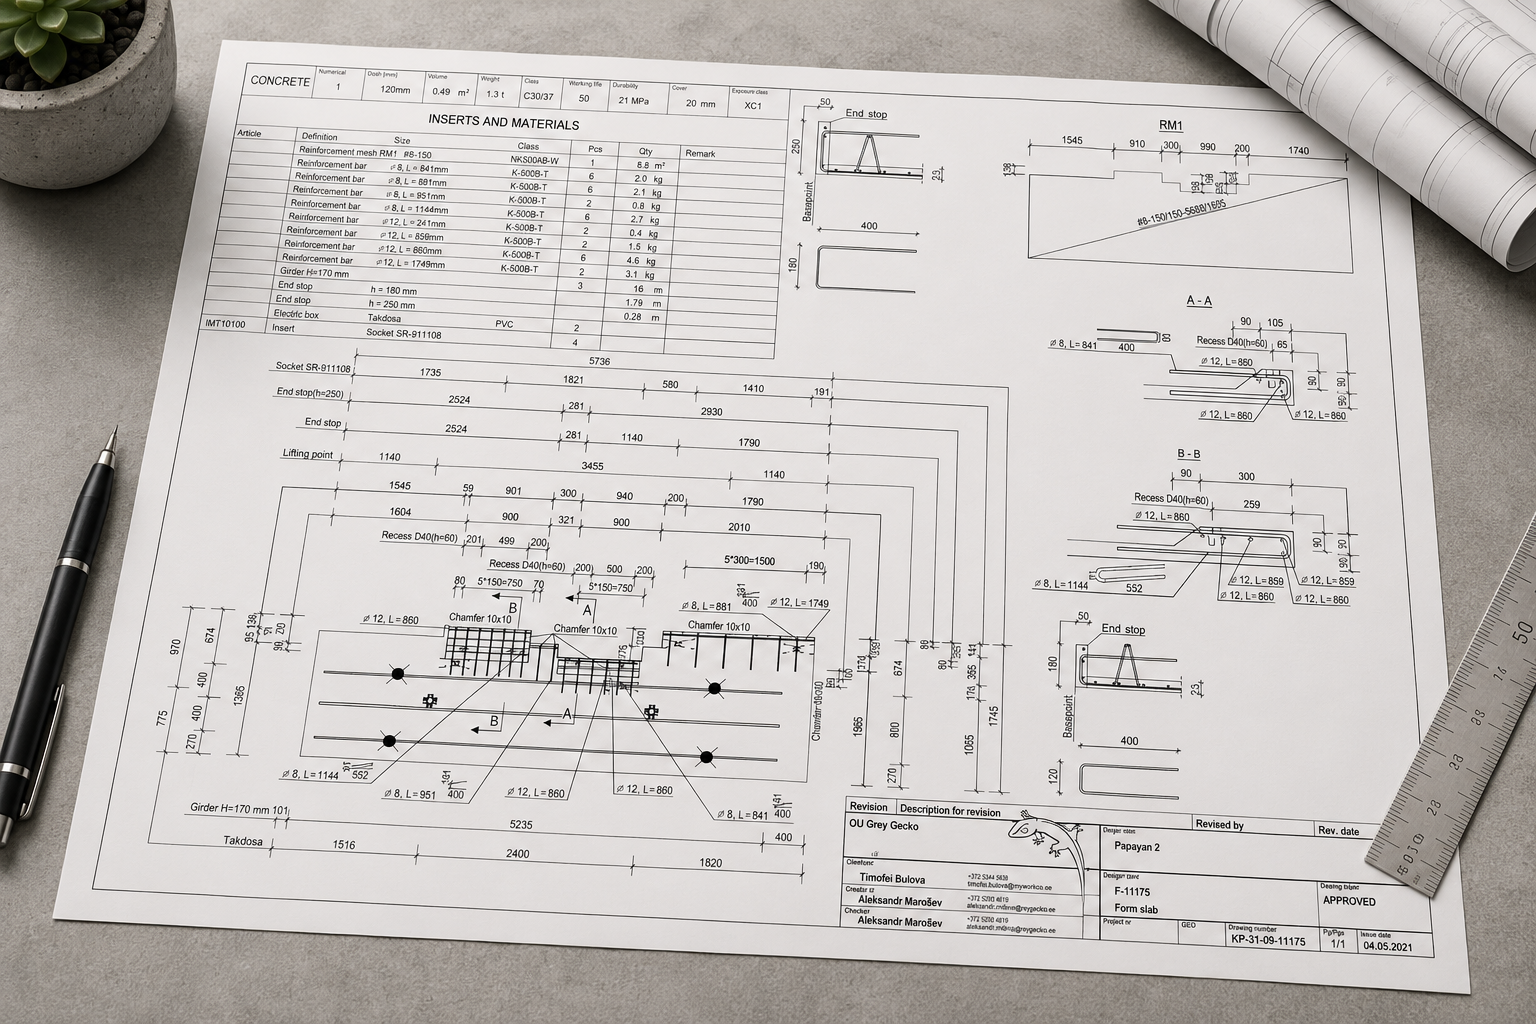 CONCRETE
Numerical
1
120mm
Volume
0.49 m²
Weight
1.3 t
Class
C30/37
Working life
50
Durability
21 MPa
Cover
20 mm
Exposure class
XC1
INSERTS AND MATERIALS
Article Definition Size Class Pcs Qty Remark
Reinforcement mesh RM1 #8-150 1
Reinforcement bar ⌀ 8, L = 841mm K-500B-T 6 2.0 kg
Reinforcement bar ⌀ 8, L = 881mm K-500B-T 6 2.1 kg
Reinforcement bar ⌀ 8, L = 951mm K-500B-T 2 0.8 kg
Reinforcement bar ⌀ 8, L = 1144mm K-500B-T 6 2.7 kg
Reinforcement bar ⌀ 12, L = 241mm K-500B-T 2 0.4 kg
Reinforcement bar ⌀ 12, L = 859mm K-500B-T 2 1.5 kg
Reinforcement bar ⌀ 12, L = 860mm K-500B-T 6 4.6 kg
Reinforcement bar ⌀ 12, L = 1749mm K-500B-T 2 3.1 kg
Girder H=170 mm 3 16 m
End stop h = 180 mm 1.79 m
End stop h = 250 mm 0.28 m
Electric box Takdosa PVC 2
IMT10100 Insert Socket SR-911108 4
50
End stop
250
Basepoint
400
180
RM1
1545 910 300 990 200 1740
A - A
90 105
Recess D40(h=60) 65
⌀ 8, L= 841 400
⌀ 12, L=860
90
90
⌀ 12, L=860 ⌀ 12, L=860
B - B
90 300
Recess D40(h=60) 259
⌀ 12, L=860
90
90
⌀ 8, L= 1144 552
⌀ 12, L=859 ⌀ 12, L=859
⌀ 12, L=860 ⌀ 12, L=860
50
End stop
180
Basepoint
400
120
5736
Socket SR-911108 1735 1821 580 1410 191
End stop(h=250) 2524 281 2930
End stop 2524 281 1140 1790
Lifting point 1140 3455 1140
1545 59 901 300 940 200 1790
1604 900 321 900 2010
Recess D40(h=60) 201 499 200
Recess D40(h=60) 200 500 200
5*300=1500 190
80 5*150=750 70
5*150=750
B A
400
⌀ 8, L=881 ⌀ 12, L=1749
⌀ 12, L=860
Chamfer 10x10 Chamfer 10x10 Chamfer 10x10
970
775
674
400
400
270
1386
B A
674
800
270
1965
355
1065
1745
⌀ 8, L=1144 552
⌀ 8, L=951 400
⌀ 12, L=860
⌀ 12, L=860
⌀ 8, L=841 400
Girder H=170 mm 101 5235 400
Takdosa 1516 2400 1820
Revision Description for revision Revised by Rev. date
OU Grey Gecko
Papayan 2
Timofei Bulova
F-11175
Form slab
APPROVED
Aleksandr Marošev
Checker
Aleksandr Marošev
Project nr
GEO
Drawing number
KP-31-09-11175
1/1
Issue date
04.05.2021
50